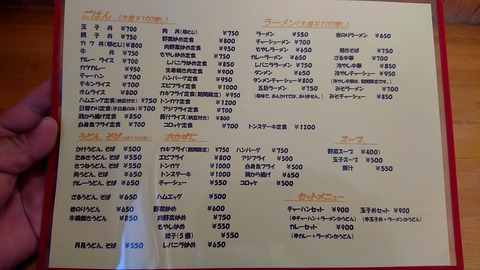 ごはん (大盛￥100増し)
玉子丼 ￥700
親子丼 ￥700
カツ丼 ￥800
牛丼 ￥750
カレーライス ￥700
カツカレー ￥950
チャーハン ￥700
チキンライス ￥700
オムライス ￥800
ハムエッグ定食(納豆付き) ￥750
鶏から揚げ定食 ￥850
白身魚フライ定食 ￥700
肉丼 ￥750
野菜炒め定食 ￥800
肉野菜炒め定食 ￥950
もやし炒め定食 ￥750
レバニラ炒め定食 ￥850
生姜焼き肉定食 ￥900
ハンバーグ定食 ￥950
エビフライ定食 ￥1000
カキフライ定食(期間限定) ￥950
トンカツ定食 ￥1200
アジフライ定食 ￥700
豚汁ライス(納豆付き) ￥800
コロッケ定食 ￥700
トンステーキ定食 ￥1200
ラーメン (大盛￥100増し)
ラーメン ￥550
チャーシューメン ￥700
もやしラーメン ￥650
カレーラーメン ￥650
レバニララーメン ￥750
タンメン ￥650
タンメンチャーシュー ￥800
五目ラーメン ￥750
岩のりラーメン ￥650
焼きそば ￥750
ざる中華 ￥700
冷やし中華 ￥850
冷やしチャーシュー ￥950
みそラーメン ￥700
みそチャーシュー ￥850
うどん、そば
かけうどん、そば ￥500
たぬきうどん、そば ￥550
きつねうどん、そば ￥550
肉うどん、そば ￥650
カレーうどん、そば ￥650
ざるうどん、そば ￥650
岩のりうどん、そば ￥650
月見うどん、そば ￥550
おかずに
カキフライ(期間限定) ￥750
エビフライ ￥800
トンカツ ￥1000
トンステーキ ￥1000
チャーシュー ￥550
ハムエッグ ￥500
野菜炒め ￥600
肉野菜炒め ￥750
もやし炒め ￥550
餃子(5個) ￥550
レバニラ炒め ￥650
ハンバーグ ￥750
アジフライ ￥500
白身魚フライ ￥500
鶏から揚げ ￥650
コロッケ ￥500
スープ
野菜スープ ￥400
玉子スープ ￥500
豚汁 ￥550
セットメニュー
チャーハンセット ￥900
(半チャーハン+ラーメンかうどん)
カレーセット ￥900
(半カレー+ラーメンかうどん)
玉子丼セット ￥900
(半玉子丼+ラーメンかうどん)